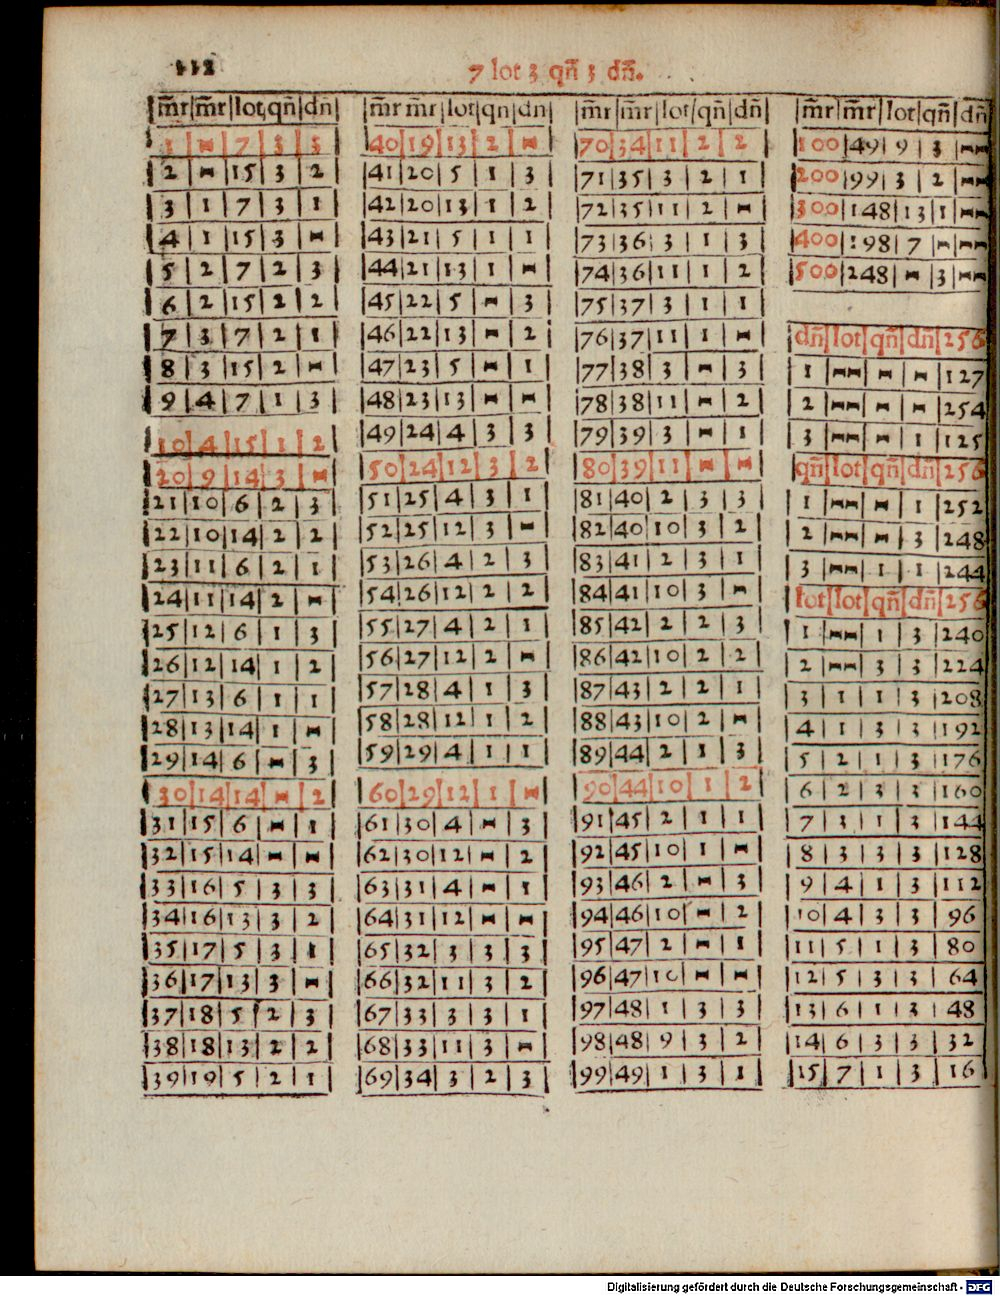 112
7 lot 3 qn̄ 3 dn̄.
m̄r|m̄r|lot|qn̄|dn̄
1|-|7|3|3
2|-|15|3|2
3|1|7|3|1
4|1|15|3|-
5|2|7|2|3
6|2|15|2|2
7|3|7|2|1
8|3|15|2|-
9|4|7|1|3
10|4|15|1|2
20|9|14|3|-
21|10|6|2|3
22|10|14|2|2
23|11|6|2|1
24|11|14|2|-
25|12|6|1|3
26|12|14|1|2
27|13|6|1|1
28|13|14|1|-
29|14|6|-|3
30|14|14|-|2
31|15|6|-|1
32|15|14|-|-
33|16|5|3|3
34|16|13|3|2
35|17|5|3|1
36|17|13|3|-
37|18|5|2|3
38|18|13|2|2
39|19|5|2|1
m̄r|m̄r|lot|qn̄|dn̄
40|19|13|2|-
41|20|5|1|3
42|20|13|1|2
43|21|5|1|1
44|21|13|1|-
45|22|5|-|3
46|22|13|-|2
47|23|5|-|1
48|23|13|-|-
49|24|4|3|3
50|24|12|3|2
51|25|4|3|1
52|25|12|3|-
53|26|4|2|3
54|26|12|2|2
55|27|4|2|1
56|27|12|2|-
57|28|4|1|3
58|28|12|1|2
59|29|4|1|1
60|29|12|1|-
61|30|4|-|3
62|30|12|-|2
63|31|4|-|1
64|31|12|-|-
65|32|3|3|3
66|32|11|3|2
67|33|3|3|1
68|33|11|3|-
69|34|3|2|3
m̄r|m̄r|lot|qn̄|dn̄
70|34|11|2|2
71|35|3|2|1
72|35|11|2|-
73|36|3|1|3
74|36|11|1|2
75|37|3|1|1
76|37|11|1|-
77|38|3|-|3
78|38|11|-|2
79|39|3|-|1
80|39|11|-|-
81|40|2|3|3
82|40|10|3|2
83|41|2|3|1
84|41|10|3|-
85|42|2|2|3
86|42|10|2|2
87|43|2|2|1
88|43|10|2|-
89|44|2|1|3
90|44|10|1|2
91|45|2|1|1
92|45|10|1|-
93|46|2|-|3
94|46|10|-|2
95|47|2|-|1
96|47|10|-|-
97|48|1|3|3
98|48|9|3|2
99|49|1|3|1
m̄r|m̄r|lot|qn̄|dn̄
100|49|9|3|--
200|99|3|2|--
300|148|13|1|--
400|198|7|-|--
500|248|-|3|--
dn̄|lot|qn̄|dn̄|256
1|--|-|-|127
2|--|-|-|254
3|--|-|1|125
qn̄|lot|qn̄|dn̄|256
1|--|-|1|252
2|--|-|3|248
3|--|1|1|244
lot|lot|qn̄|dn̄|256
1|--|1|3|240
2|--|3|3|224
3|1|1|3|208
4|1|3|3|192
5|2|1|3|176
6|2|3|3|160
7|3|1|3|144
8|3|3|3|128
9|4|1|3|112
10|4|3|3|96
11|5|1|3|80
12|5|3|3|64
13|6|1|3|48
14|6|3|3|32
15|7|1|3|16
Digitalisierung gefördert durch die Deutsche Forschungsgemeinschaft - DFG